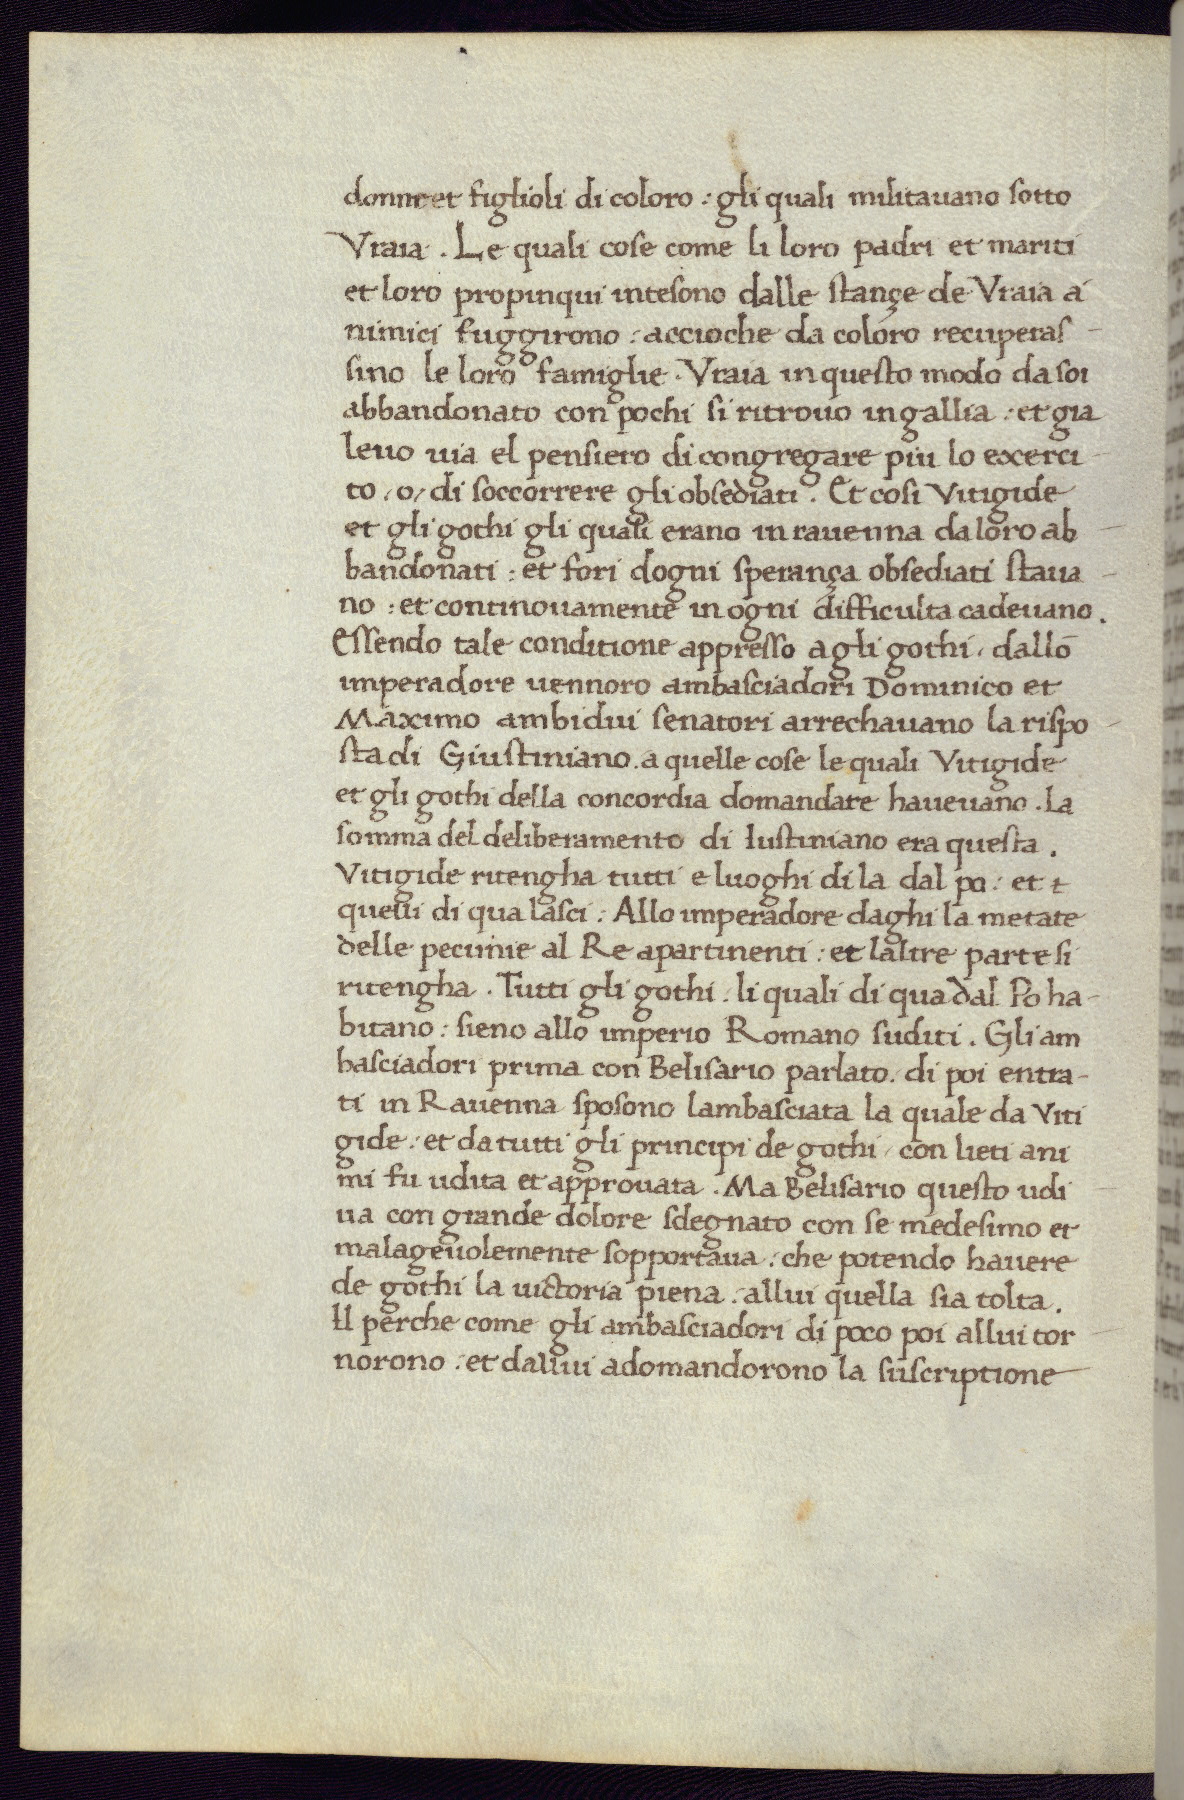 donne et figlioli di coloro : gli quali militauano sotto
Vraia . Le quali cose come li loro padri et mariti
et loro propinqui intesono dalle stançe de Vraia a
nimici fuggirono : accioche da coloro recuperas -
sino le loro famiglie . Vraia in questo modo da soi
abbandonato con pochi si ritrouo in gallia : et gia
leuo uia el pensiero di congregare piu lo exerci -
to / o / di soccorrere gli obsediati . Et cosi Vitigide
et gli gothi gli quali erano in rauenna da loro ab -
bandonati : et fori dogni sperança obsediati staua -
no : et continouamente in ogni difficulta cadeuano .
Essendo tale conditione appresso agli gothi / dallo
imperadore uennoro ambasciadori Dominico et
Maximo ambidui senatori arrechauano la rispo -
sta di Giustiniano . a quelle cose le quali Vitigide
et gli gothi della concordia domandate haueuano . La
somma del deliberamento di Iustiniano era questa .
Vitigide ritengha tutti e luoghi di la dal po : et t
quelli di qua lasci : Allo imperadore daghi la metate
delle pecunie al Re apartinenti : et laltre parte si
ritengha . Tutti gli gothi . li quali di qua dal Po ha -
bitano : sieno allo imperio Romano suditi . Gli am
basciadori prima con Belisario parlato . di poi entra -
ti in Rauenna sposono lambasciata la quale da Viti
gide : et da tutti gli principi de gothi / con lieti ani
mi fu udita et approuata . Ma Belisario questo udi -
ua con grande dolore sdegnato con se medesimo et
malageuolemente sopportaua : che potendo hauere
de gothi la uictoria piena . allui quella sia tolta .
Il perche come gli ambasciadori di poco poi allui tor -
norono : et dallui adomandorono la suscriptione